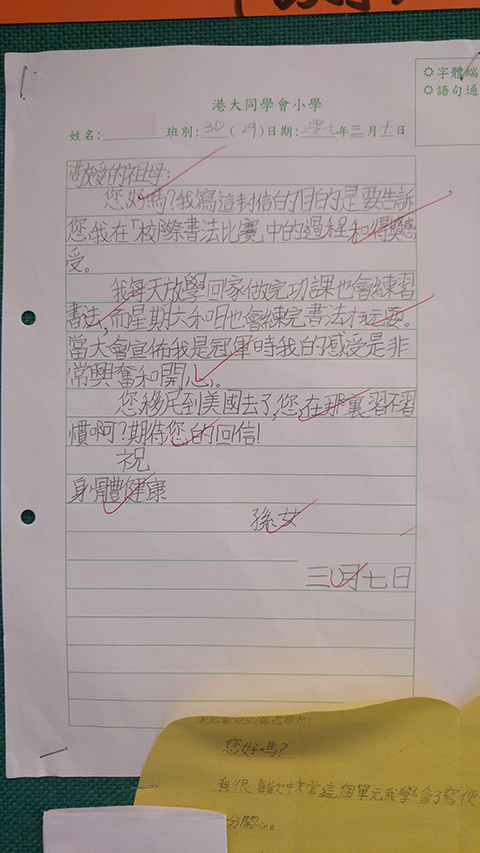 字體端
語句通
港大同學會小學
姓名: 班別: 3D (29) 日期: 年三月十日
敬愛的祖母:
您好嗎?我寫這封信的目的是要告訴
您,我在「校際書法比賽」中的過程和得獎感
受。
我每天放學回家做完功課也會練習
書法,而星期六和日也會練完書法才玩耍。
當大會宣佈我是冠軍時我的感受是非
常興奮和開心。
您移民到美國去了,您在那裏習不習
慣啊?期待您的回信!
祝
身體健康
孫女
三月七日
您好嗎?
我很喜歡中文堂這個單元我學會了寫便
分開心。